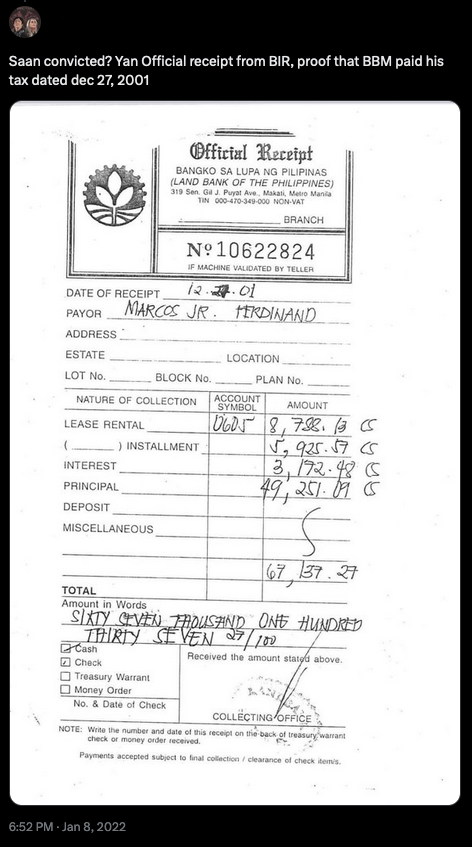 Saan convicted? Yan Official receipt from BIR, proof that BBM paid his
tax dated dec 27, 2001
Official Receipt
BANGKO SA LUPA NG PILIPINAS
(LAND BANK OF THE PHILIPPINES)
319 Sen. Gil J. Puyat Ave., Makati, Metro Manila
TIN 000-470-349-000 NON-VAT
BRANCH
Nº 10622824
IF MACHINE VALIDATED BY TELLER
DATE OF RECEIPT 12. 27. 01
PAYOR MARCOS JR. FERDINAND
ADDRESS
ESTATE LOCATION
LOT No. BLOCK No. PLAN No.
NATURE OF COLLECTION ACCOUNT SYMBOL AMOUNT
LEASE RENTAL 0605 8,788.13 CS
( ) INSTALLMENT 5,925.57 CS
INTEREST 3,172.48 CS
PRINCIPAL 49,251.09 CS
DEPOSIT
MISCELLANEOUS
67,137.27
TOTAL
Amount in Words
SIXTY SEVEN THOUSAND ONE HUNDRED
THIRTY SEVEN 27/100
Cash
Check
Treasury Warrant
Money Order
No. & Date of Check
Received the amount stated above.
COLLECTING OFFICE
NOTE: Write the number and date of this receipt on the back of treasury warrant
check or money order received.
Payments accepted subject to final collection / clearance of check item/s.
6:52 PM · Jan 8, 2022